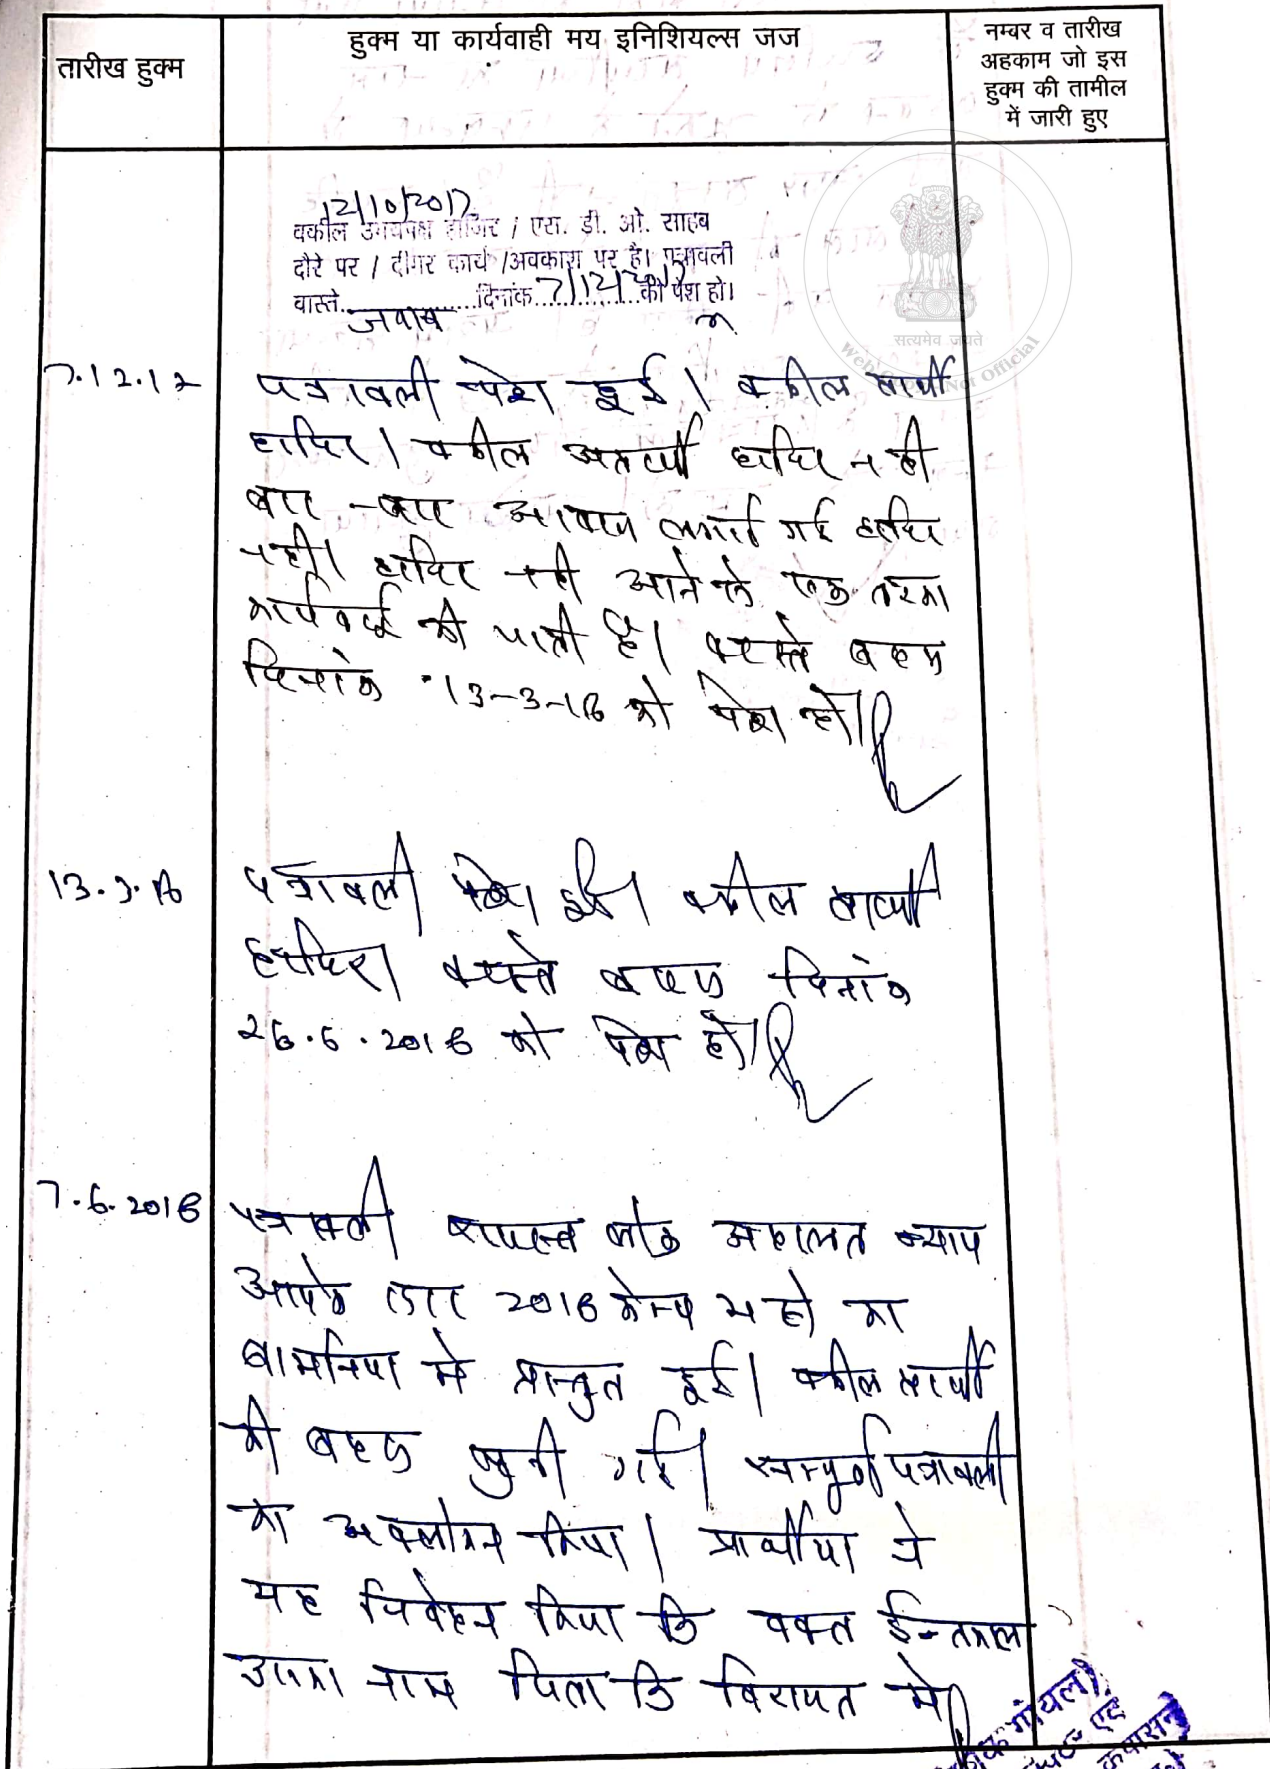 तारीख हुक्म
हुक्म या कार्यवाही मय इनिशियल्स जज
नम्वर व तारीख
अहकाम जो इस
हुक्म की तामील
में जारी हुए
12/10/2017
वकील उभयपक्ष हाजिर / एस. डी. ओ. साहब
दौरे पर / दीगर कार्य /अवकाश पर है। पत्रावली
वास्ते..................दिनांक 7/12/2017 को पेश हो।
जवाब
सत्यमेव जयते
Not Official
7.12.17
पत्रावली पेश हुई। वकील प्रार्थी
हाजिर। वकील अप्रार्थी हाजिर नही
बार-बार आवाज लगाई गई हाजिर
नही। हाजिर नही आने से एक तरफा
कार्यवाई की जाती है। वास्ते बहस
दिनांक 13-3-18 को पेश हो।
13.3.18
पत्रावली पेश हुई। वकील प्रार्थी
हाजिर। वास्ते बहस दिनांक
26.6.2018 को पेश हो।
7.6.2018
पत्रावली राजस्व लोक अदालत न्याय
आपके द्वार 2018 केम्प
बामनिया मे प्रस्तुत हुई। वकील प्रार्थी
की बहस सुनी गई। सम्पूर्ण पत्रावली
का अवलोकन किया। प्रार्थीया ने
यह निवेदन किया कि वक्त ईन्तकाल
उसका नाम पिता कि विरासत मे
गोयल)
एवं